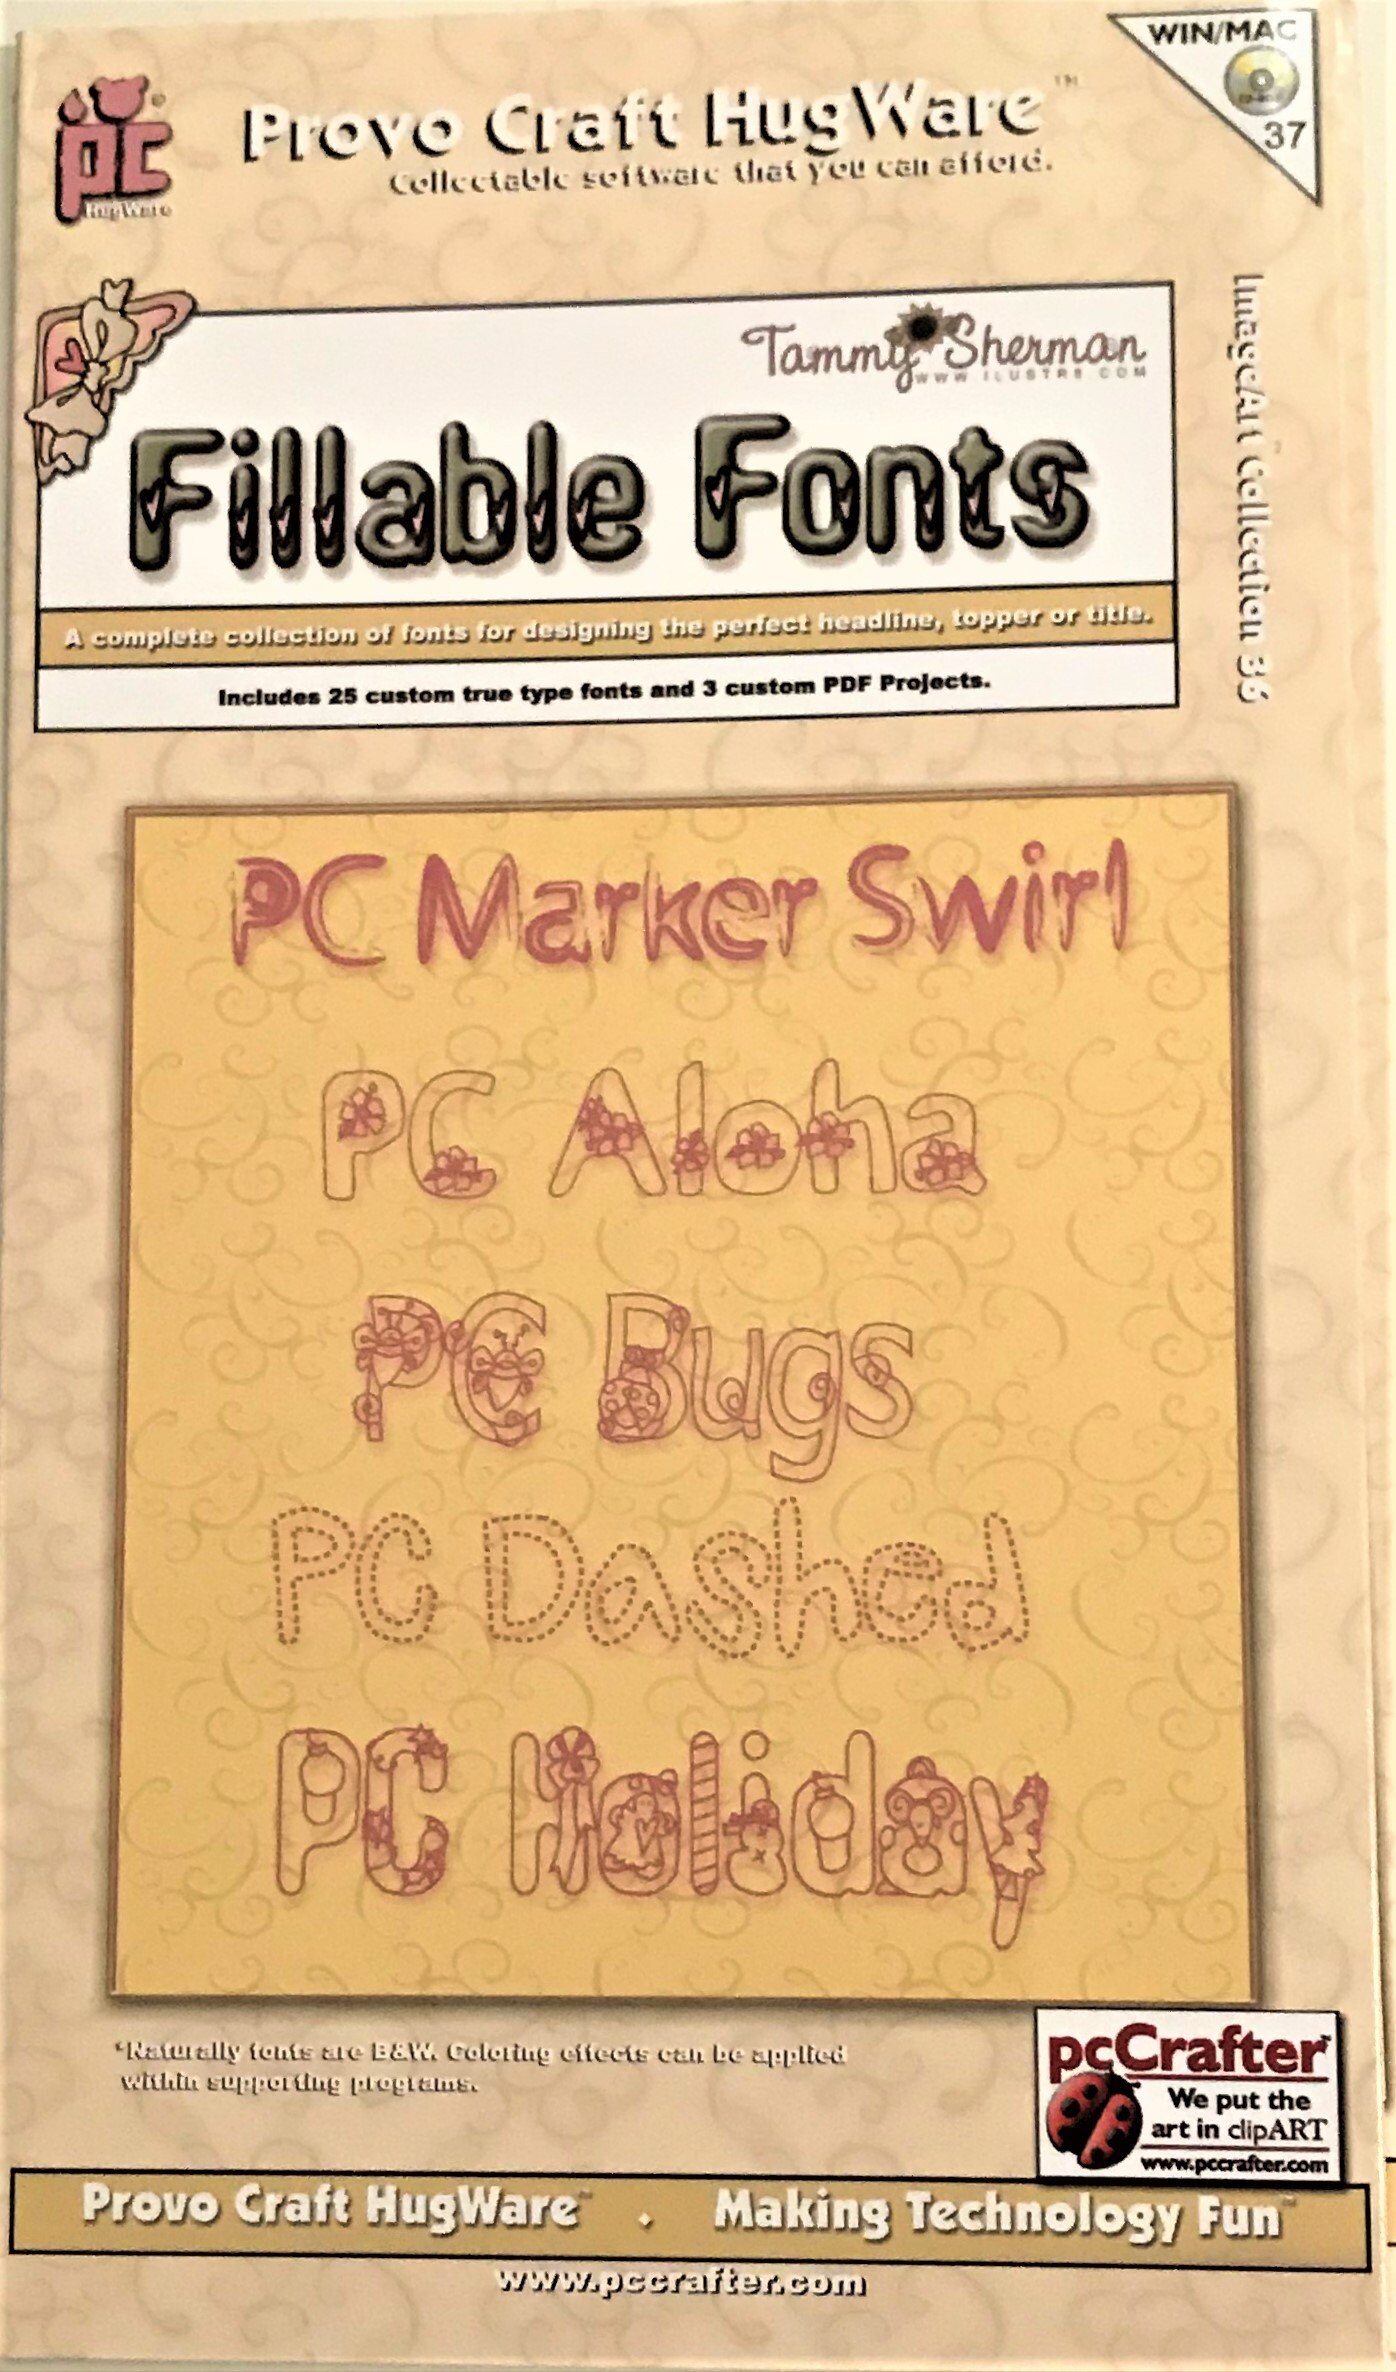 WIN/MAC
37
pc
HugWare
Provo Craft HugWare™
Collectable software that you can afford.
Tammy Sherman
WWW.ILUSTR8.COM
Fillable Fonts
A complete collection of fonts for designing the perfect headline, topper or title.
Includes 25 custom true type fonts and 3 custom PDF Projects.
ImageArt Collection 36
PC Marker Swirl
PC Aloha
PC Bugs
PC Dashed
PC Holiday
*Naturally fonts are B&W. Coloring effects can be applied
within supporting programs.
pcCrafter™
We put the
art in clipART
www.pccrafter.com
Provo Craft HugWare™ • Making Technology Fun™
www.pccrafter.com